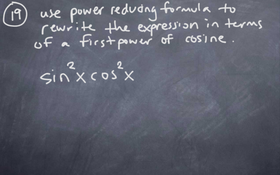 19 use power reducing formula to
rewrite the expression in terms
of a first power of cosine.
sin²x cos²x